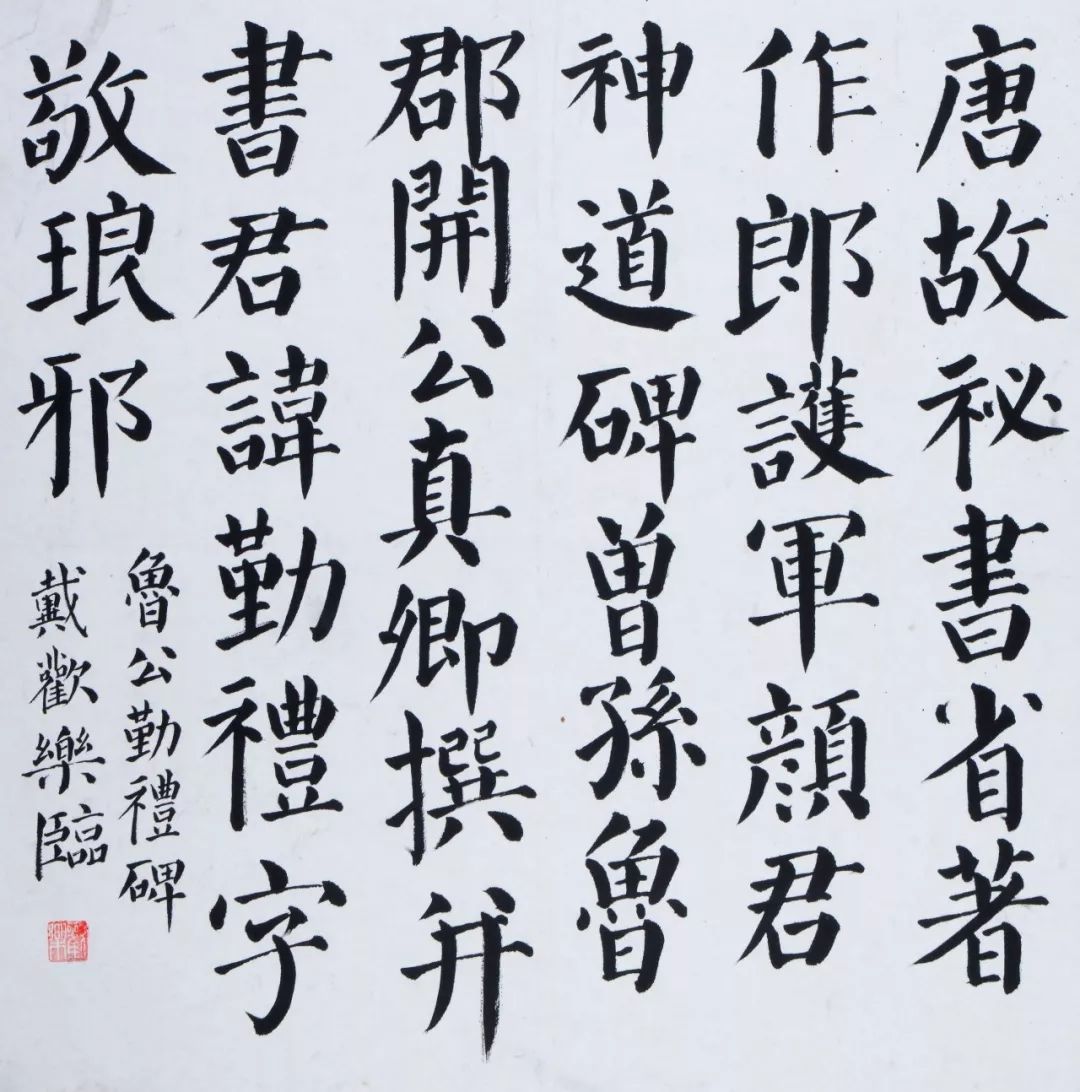 唐故祕書省著
作郎護軍顔君
神道碑曾孫魯
郡開公真卿撰并
書君諱勤禮字
敬琅邪
魯公勤禮碑
戴歡樂臨